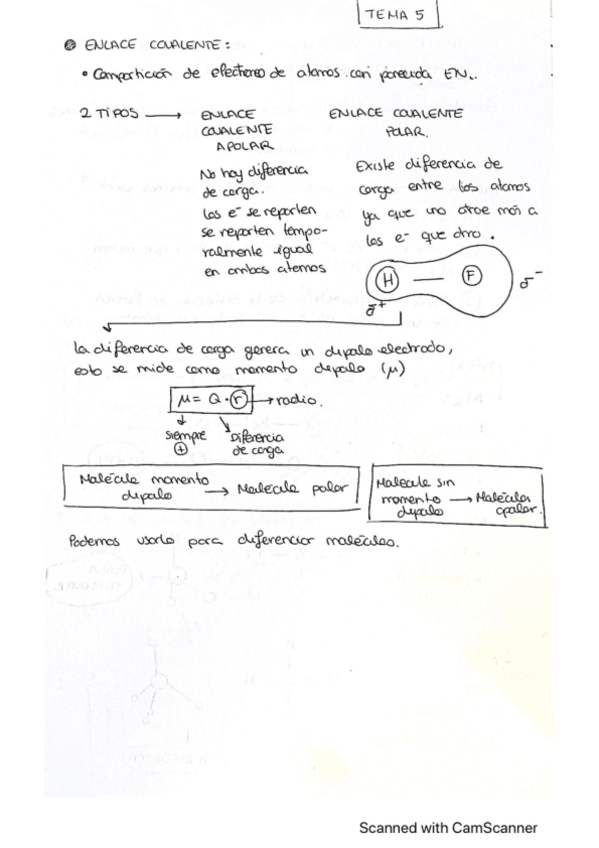 TEMA 5
ENLACE COVALENTE:
• Compartición de electrones de atomos con parecida EN.
2 TIPOS → ENLACE COVALENTE APOLAR
No hay diferencia
de carga.
Los e⁻ se reporten
se reporten tempo-
ralmente igual
en ambos atomos
ENLACE COVALENTE
POLAR.
Existe diferencia de
carga entre los atomos
ya que uno atrae más a
los e⁻ que otro.
H — F
δ⁺
δ⁻
La diferencia de carga genera un dipolo electrodo,
esto se mide como momento dipolo (μ)
μ = Q · r → radio.
siempre
+
Diferencia
de carga
Molécula momento
dipolo → Molécula polar
Molécula sin
momento → Molécula
dipolo apolar.
Podemos usarlo para diferenciar moléculas.
Scanned with CamScanner